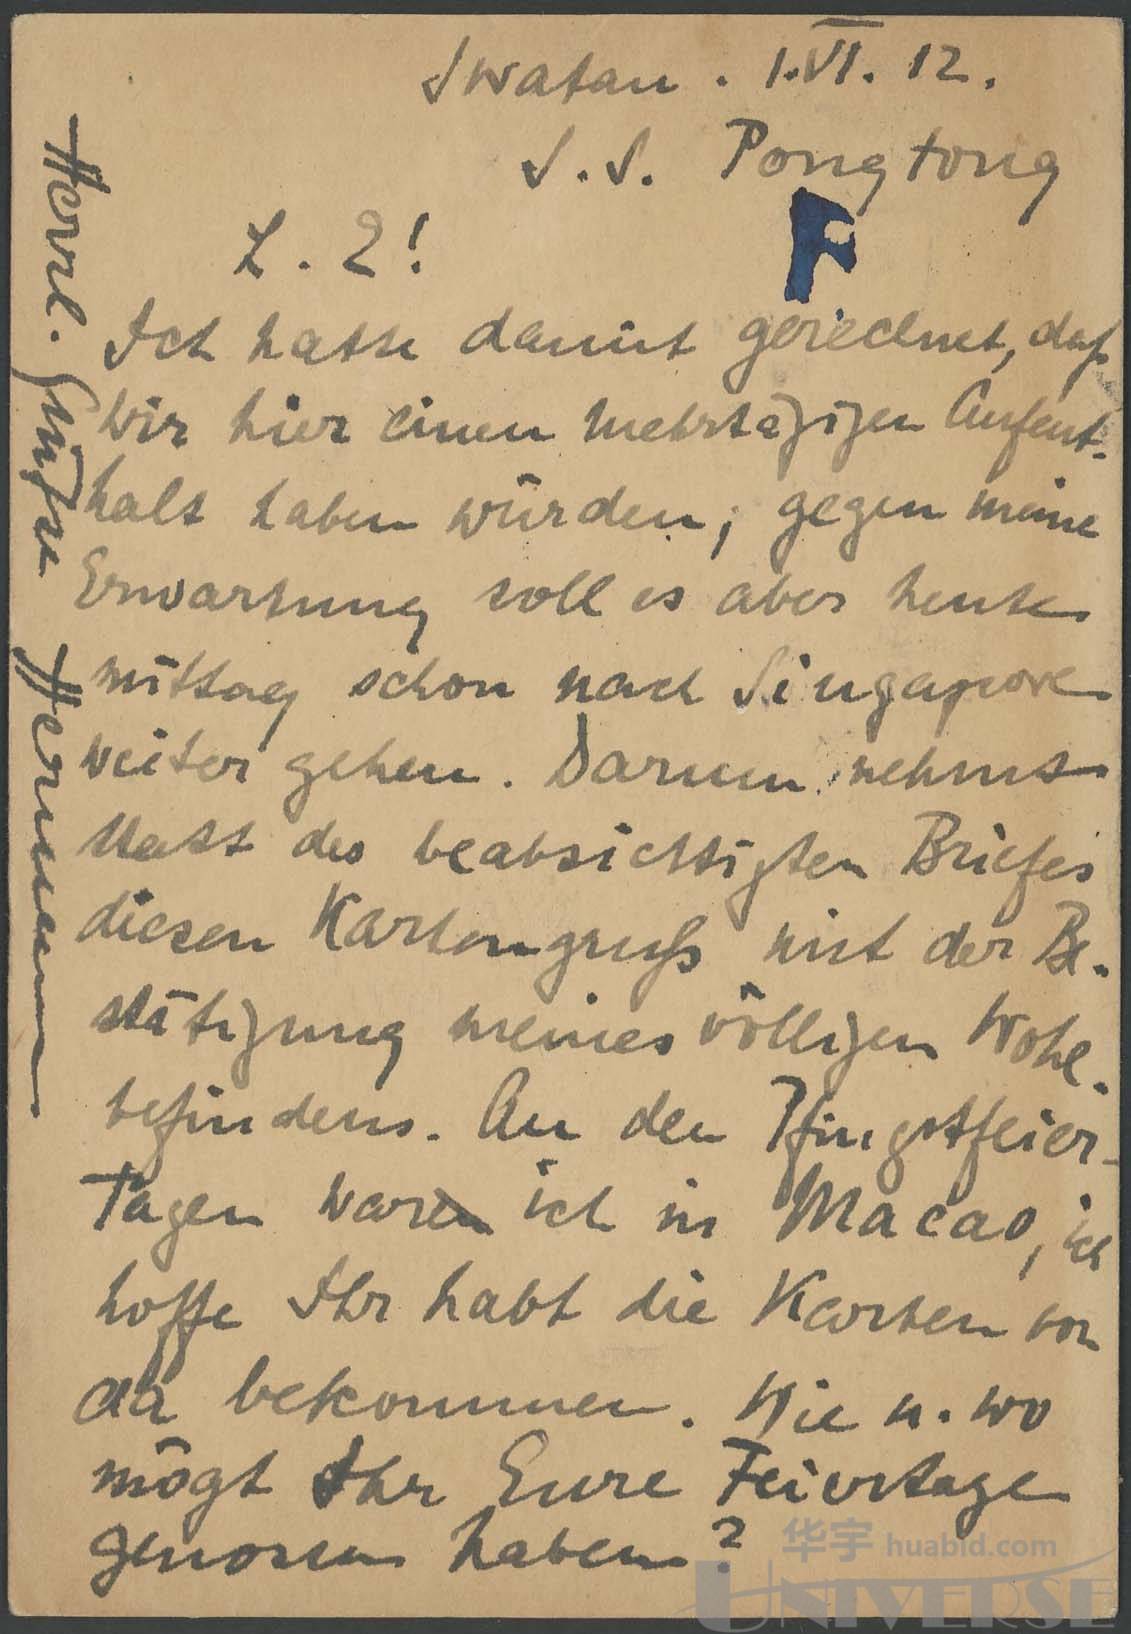 Swatau. 1.VI.12.
S.S. Pongtong
F
L. 2!
Ich hatte damit gerechnet, daß
wir hier einen mehrtägigen Aufent-
halt haben würden, gegen meine
Erwartung soll es aber heute
mittag schon nach Singapore
weiter gehen. Darum nehmt
statt des beabsichtigten Briefes
diesen Kartengruß mit der Be-
stätigung meines völligen Wohl-
befindens. An den Pfingstfeier-
Tagen war ich in Macao, ich
hoffe Ihr habt die Karten von
da bekommen. Wie u. wo
mögt Ihr Eure Feiertage
genossen haben?
Herzl. Grüße Hermann
华宇 huabid.com
UNIVERSE